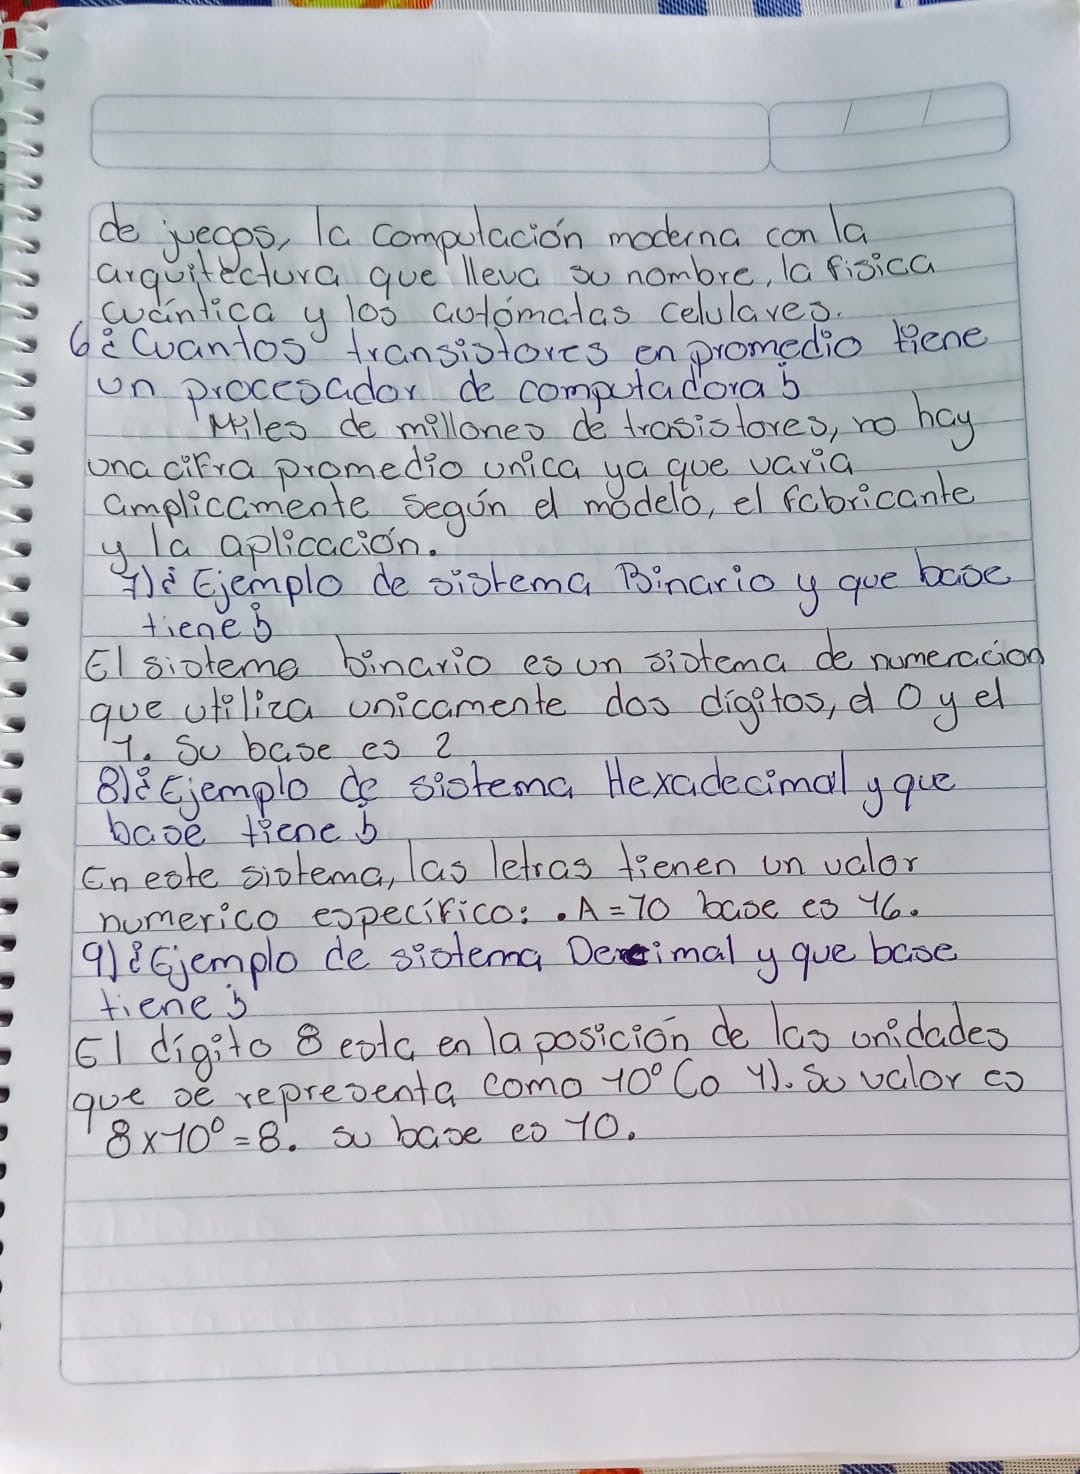 de juegos, la computación moderna con la
arquitectura que lleva su nombre, la fisica
cuántica y los autómatas celulares.
6¿Cuantos transistores en promedio tiene
un procesador de computadora?
Miles de millones de trasistores, no hay
una cifra promedio unica ya que varia
amplicamente según el modelo, el fabricante
y la aplicación.
7)¿Ejemplo de sistema Binario y que base
tiene?
El sistema binario es un sistema de numeracion
que utiliza unicamente dos dígitos, el 0 y el
1. Su base es 2
8)¿Ejemplo de sistema Hexadecimal y que
base tiene?
En este sistema, las letras tienen un valor
numerico específico: .A=10 base es 16.
9)¿Ejemplo de sistema Decimal y que base
tiene?
El dígito 8 esta en la posición de las unidades
que se representa como 10⁰ (o 1). Su valor es
8x10⁰=8. su base es 10.